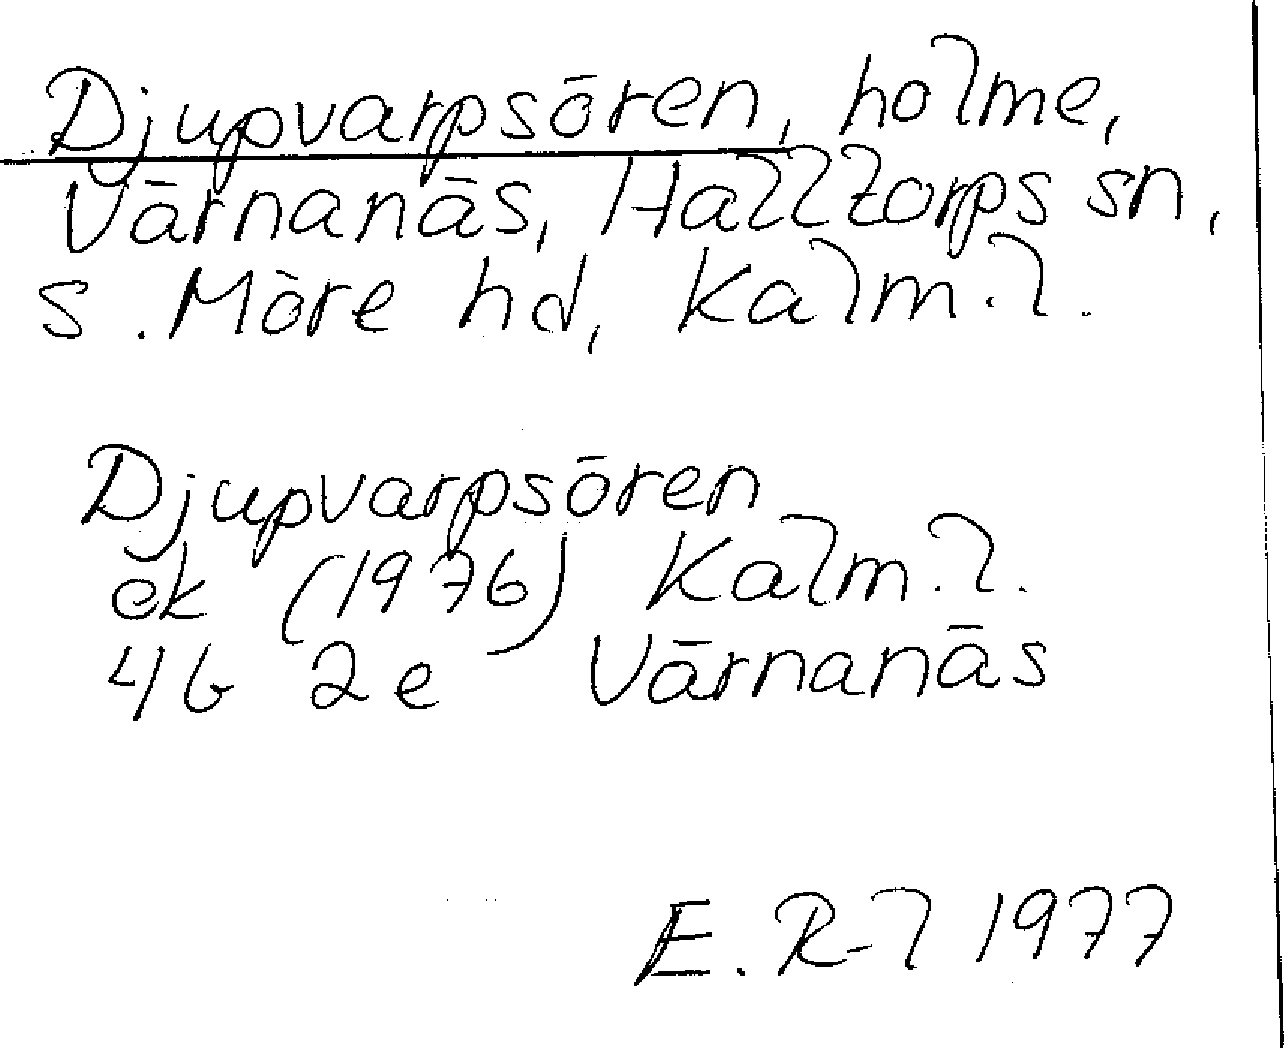 Djupvarpsören, holme,
Värnanäs, Halltorps sn,
s. Möre hd, Kalm. l.
Djupvarpsören
ek (1976) Kalm. l.
4G 2e Värnanäs
E. R-l 1977